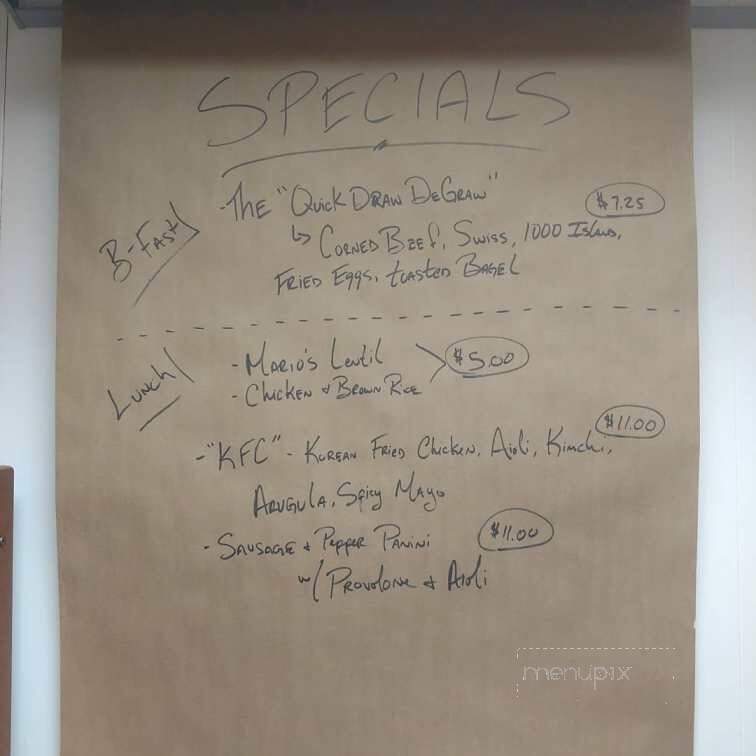 SPECIALS
B-FAST/
- THE "QUICK DRAW DEGRAW" $7.25
↳ CORNED BEEF, SWISS, 1000 ISLAND,
FRIED EGGS, toasted BAGEL
LUNCH/
- MARIO'S Lentil
- CHICKEN & BROWN RICE $5.00
- "KFC" - KOREAN FRIED CHICKEN, Aioli, Kimchi, $11.00
ARUGULA, Spicy MAYO
- SAUSAGE & Pepper PANINI $11.00
w/ PROVOLONE & Aioli
menupix